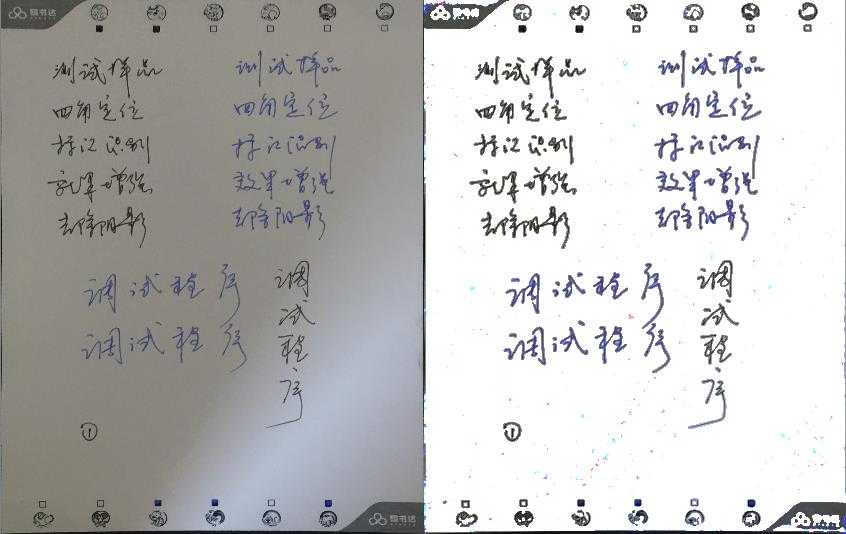 测试样品 测试样品
四角定位 四角定位
标记识别 标记识别
效果增强 效果增强
去除阴影 去除阴影
调试程序
调试程序
调试程序
1
测试样品 测试样品
四角定位 四角定位
标记识别 标记识别
效果增强 效果增强
去除阴影 去除阴影
调试程序
调试程序
调试程序
1